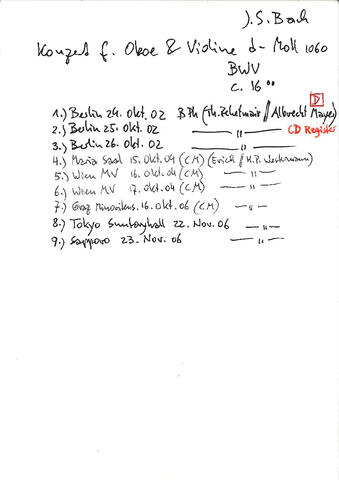 J.S. Bach
Konzert f. Oboe & Violine d-Moll 1060
BWV
c. 16 00
D
1.) Berlin 24. Okt. 02 B Ph (Th. Zehetmair // Albrecht Mayer)
2.) Berlin 25. Okt. 02 —— " —— CD Register
3.) Berlin 26. Okt. 02 —— " ——
4.) Maria Saal 15. Okt. 04 (CM) (Erich / K.P.
5.) Wien MV 16. Okt. 04 (CM) —— " ——
6.) Wien MV 17. Okt. 04 (CM) —— " ——
7.) Graz 16. Okt. 06 (CM) — " —
8.) Tokyo Suntoryhall 22. Nov. 06 — " —
9.) Sapporo 23. Nov. 06 —— " ——